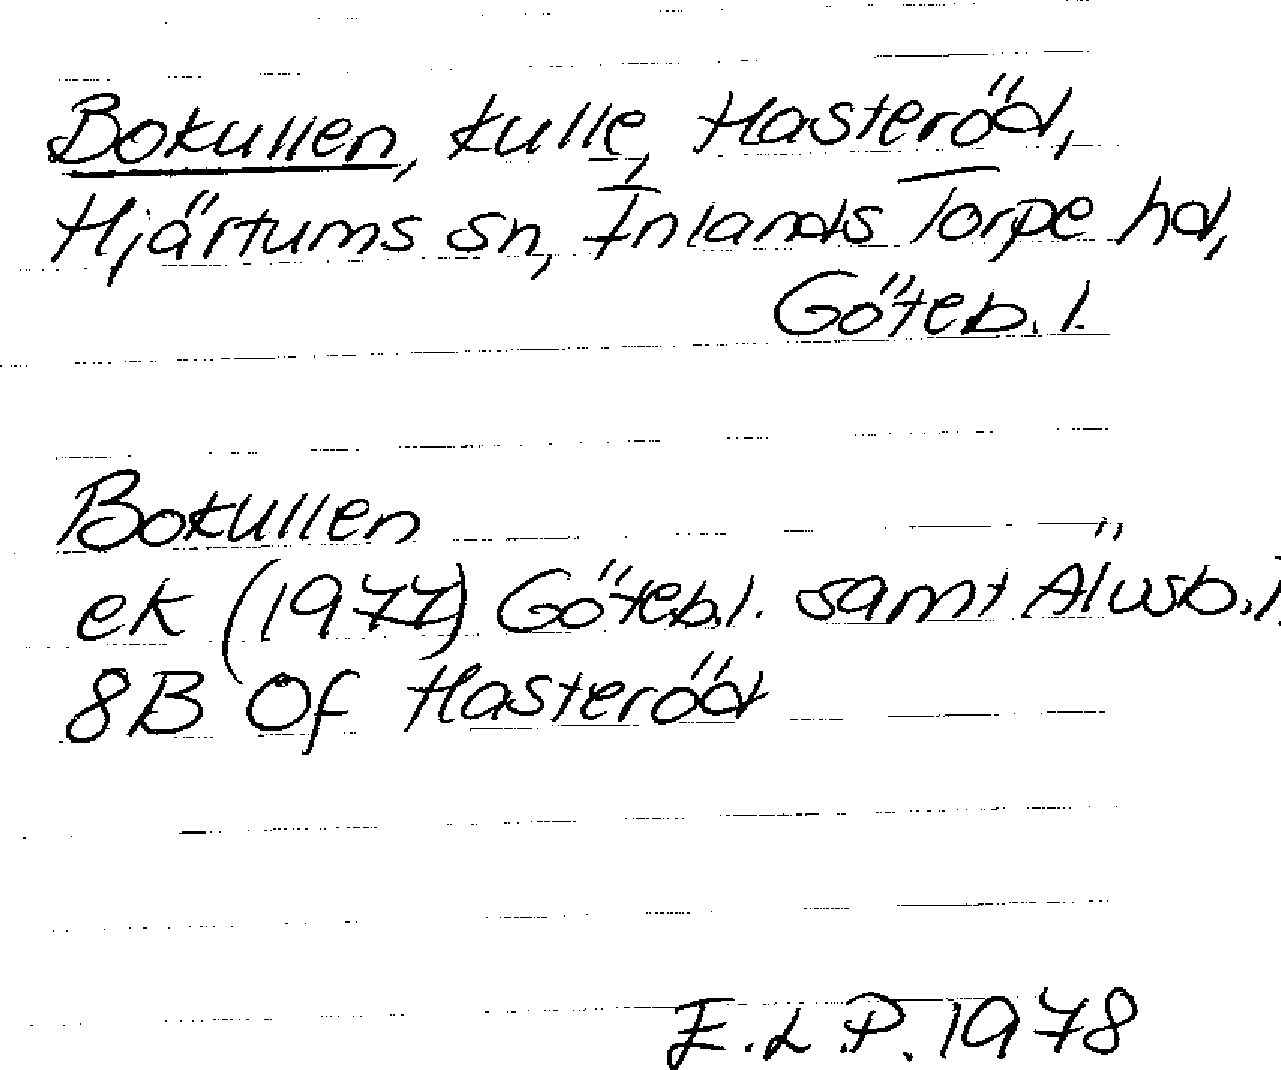 Bokullen, kulle, Hasteröd,
Hjärtums sn, Inlands Torpe hd,
Göteb. l.
Bokullen
ek (1977) Göteb. l. samt Älvsb. l.
8B 0f Hasteröd
E.L.P. 1978